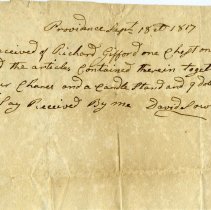 Providence Sept 18th 1817
eceived of Richard Gifford one Chest on
d the articles Contained therein toget
ur Chares and a Candle Stand and 9 dol
Pay Received By me David